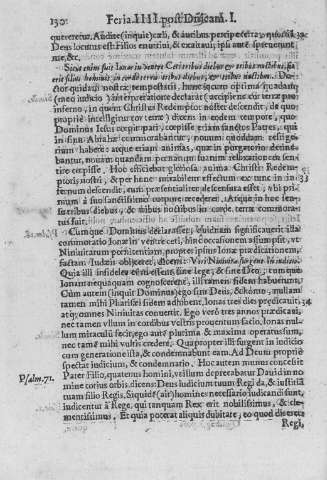 130. Feria IIII. post Dñicam. I.
quereretur, Audite (inquit) cæli, & auribus percipe terra, quoniã
Deus locutus est: Filios enutrivi, & exaltavi, ipsi autẽ spreverunt
me, &c.
Sicut enim fuit Ionas in ventre Ceti tribus diebus, & tribus noctibus, sic
erit filius hominis in corde terræ tribus diebus, & tribus noctibus. Do-
ctor quidam nostræ tempestatis, hunc locum optimè
(meo iudicio) interpretatione declarat
inferno, in quem Christus Redemptor noster descendit, de quo
propriè intelligitur cor terræ) dicens in eodem tempore, quo
Dominus Iesus corpit pari, cœpisse etiam sanctos Patres, qui
in sinu Abrahæ commorabantur, novum quoddam refrige-
rium habere: atque etiam animas, quæ in purgatorio detine-
bantur, novam quandam pœnarum suarum relaxationem sen-
tire cœpisse. Hoc efficiebat gloriosa anima Christi Redem-
ptoris nostri, & per hunc mirabilem effectum ex tunc in in- 33
fernum descendit, cùm præsentialiter descensura esset, ubi pri-
mùm à suo sanctissimo corpore recederet. Atque in hoc sen-
su tribus diebus, & tribus noctibus in corde terræ commora-
tus fuit.
Cumque Dominus declarasset, quidnam significaverit illa
commoratio Ionæ in ventre ceti, hinc occasionem assumpsit, ut
Ninivitarum pœnitentiam, propter ipsius Ionæ prædicationem,
factam Iudæis obijceret, dicens: Viri Ninivitæ surgent in iudicio.
Quia illi infideles cùm essent, sine lege, & sine Deo, cùm que
Ionam nequaquam cognoscerent, illi tamen fidem habuerunt.
Cùm autem (inquit Dominus) ego sim Deus, & homo, nullam
tamen mihi Pharisæi fidem adhibent. Ionas tres dies prædicavit, 34
atque omnes Ninivitas convertit. Ego verò tres annos prædicavi,
nec tamen ullum in cordibus vestris proventum facio, Ionas nul-
lum miraculum fecit, ego autẽ plurima & maxima operatus sum,
nec tamẽ mihi vultis credere. Quapropter illi surgent in iudicio
cum generatione ista, & condemnabunt eam. Ad Deum propriè
spectat iudicium, & condemnatio. Hoc autem munus concessit
Psalm. 71. Pater Filio, quatenus homini, vel illum deprecabatur David in no
mine totius orbis, dicens: Deus iudicium tuum Regi da, & iustitiã
tuam filio Regis, Siquidẽ (ait) homines necessario iudicandi sunt,
iudicentur à Rege, qui tanquam Rex erit nobilissimus, & cle-
mentissimus. Et quia poterat aliquis dubitare, eo quod diversa
Regi,